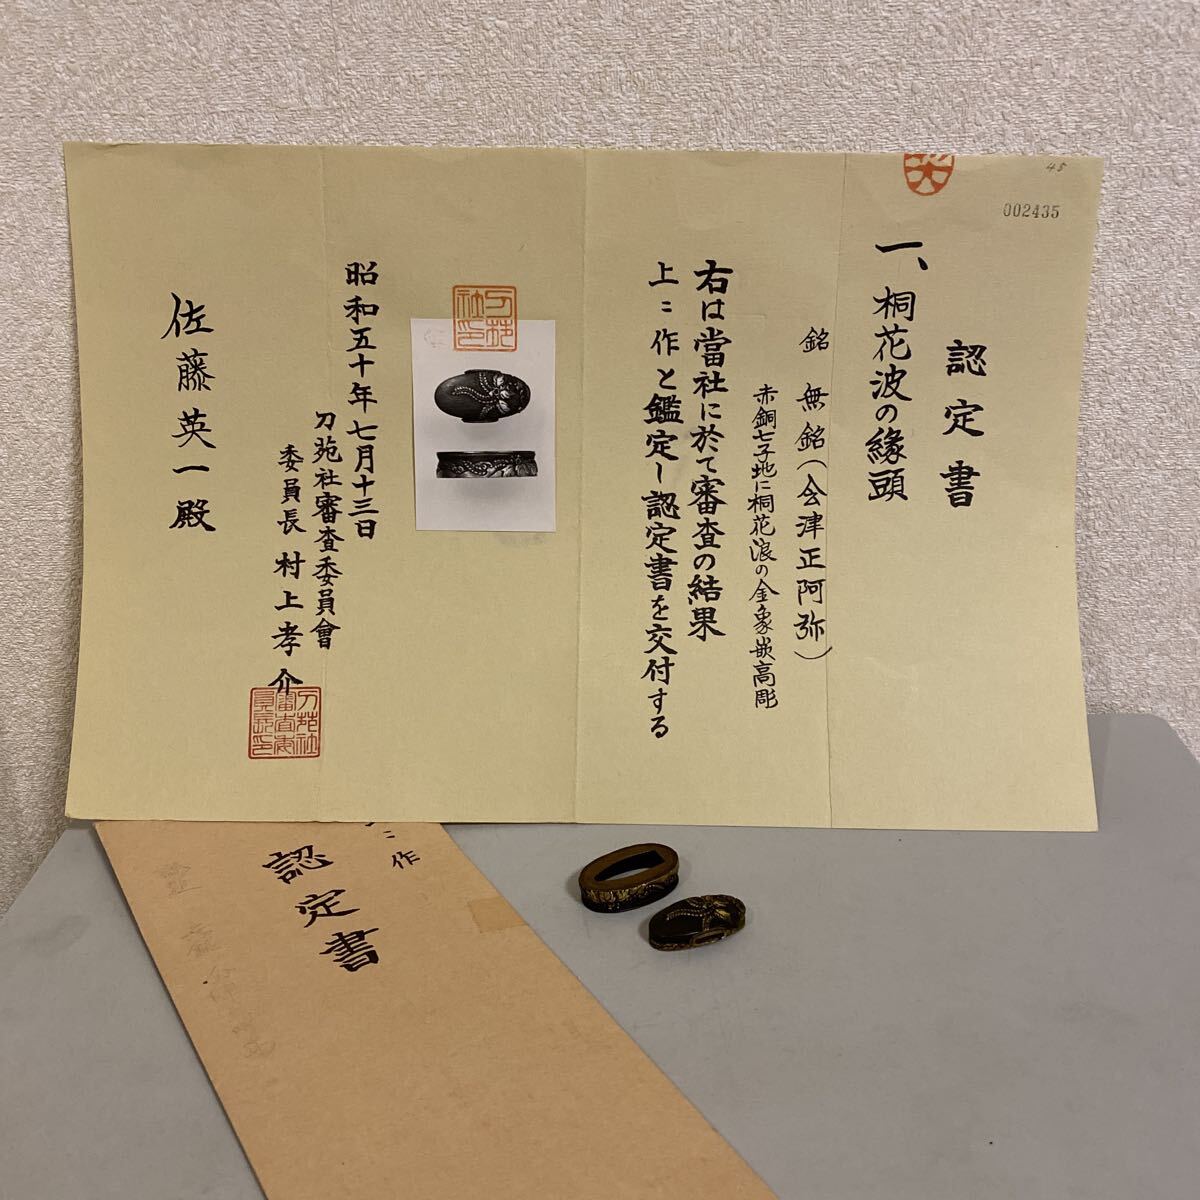 45
002435
認定書
一、桐花波の縁頭
銘 無銘(会津正阿弥)
赤銅七子地に桐花浪の金象嵌高彫
右は當社に於て審査の結果
上々作と鑑定し認定書を交付する
刀苑社印
昭和五十年七月十三日
刀苑社審査委員會
委員長 村上孝介
刀苑社審査委員長印
佐藤英一殿
々作
認定書